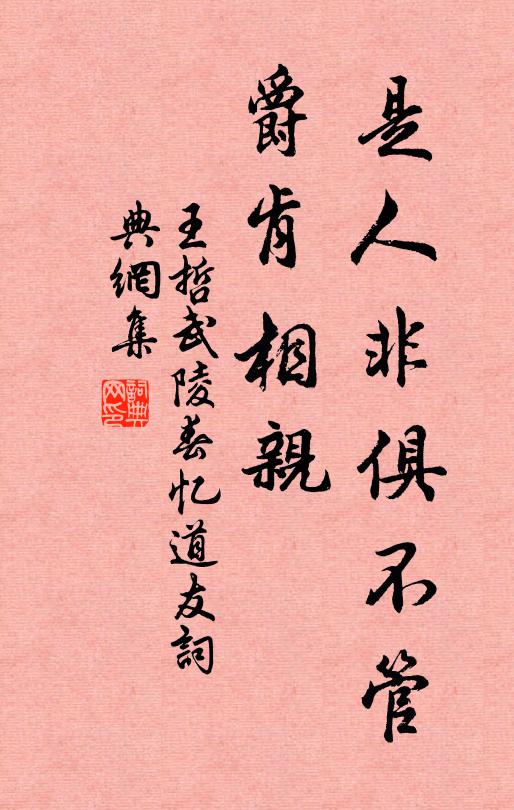 是人非俱不管
爵肯相親
王哲武陵春忆道友詞
典網集
詞典
网印